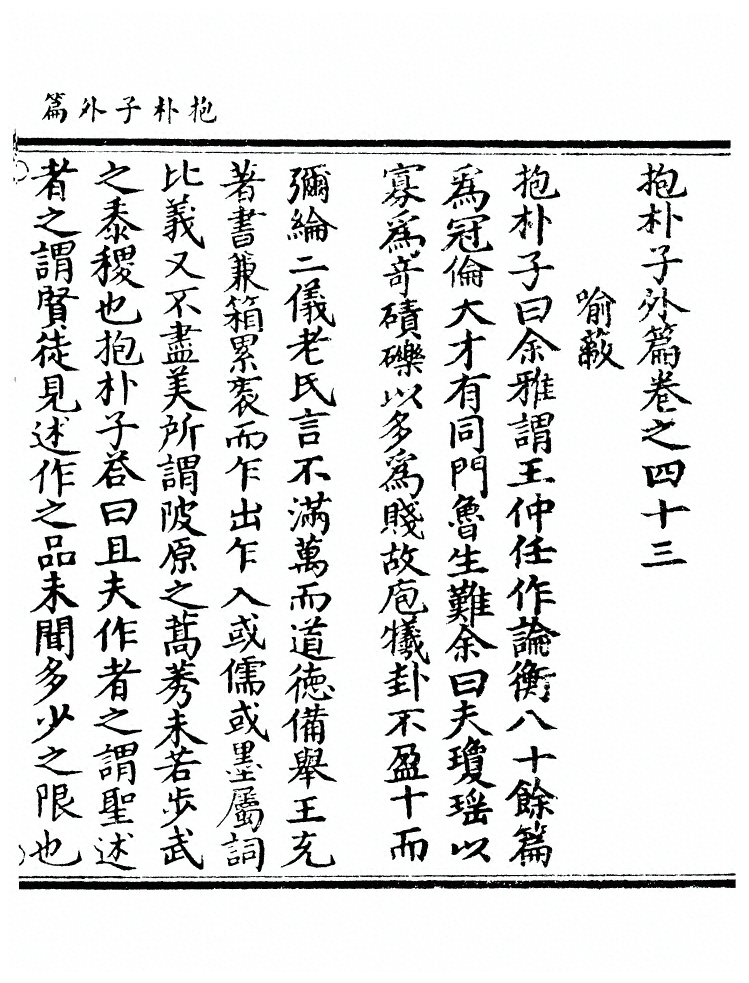 抱朴子外篇
抱朴子外篇卷之四十三
喻蔽
抱朴子曰余雅謂王仲任作論衡八十餘篇
爲冠倫大才有同門魯生難余曰夫瓊瑶以
寡爲竒磧礫以多爲賤故庖犧卦不盈十而
彌綸二儀老氏言不滿萬而道徳備舉王充
著書兼箱累袠而乍出乍入或儒或墨屬詞
比義又不盡美所謂陂原之蒿莠未若步武
之黍稷也抱朴子荅曰且夫作者之謂聖述
者之謂賢徒見述作之品未聞多少之限也